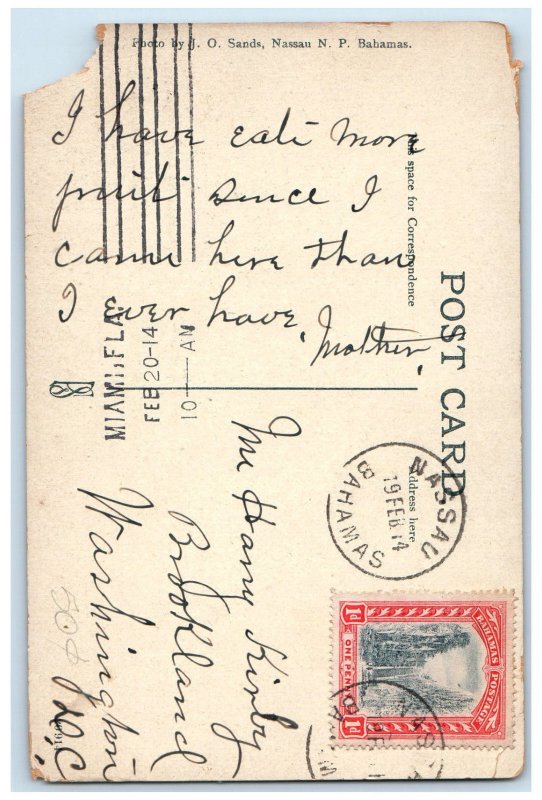 Photo by J. O. Sands, Nassau N. P. Bahamas.
I have eate more
fruit since I
came here than
I ever have.
Mother.
This space for Correspondence
POST CARD
Address here
MIAMI, FLA.
FEB 20-14
10 — AM
Mr Harry Kirby
Brookland
Washington
D.C.
NASSAU
19 FEB 14
B
BAHAMAS
BAHAMAS POSTAGE
1d
ONE PENNY
1d